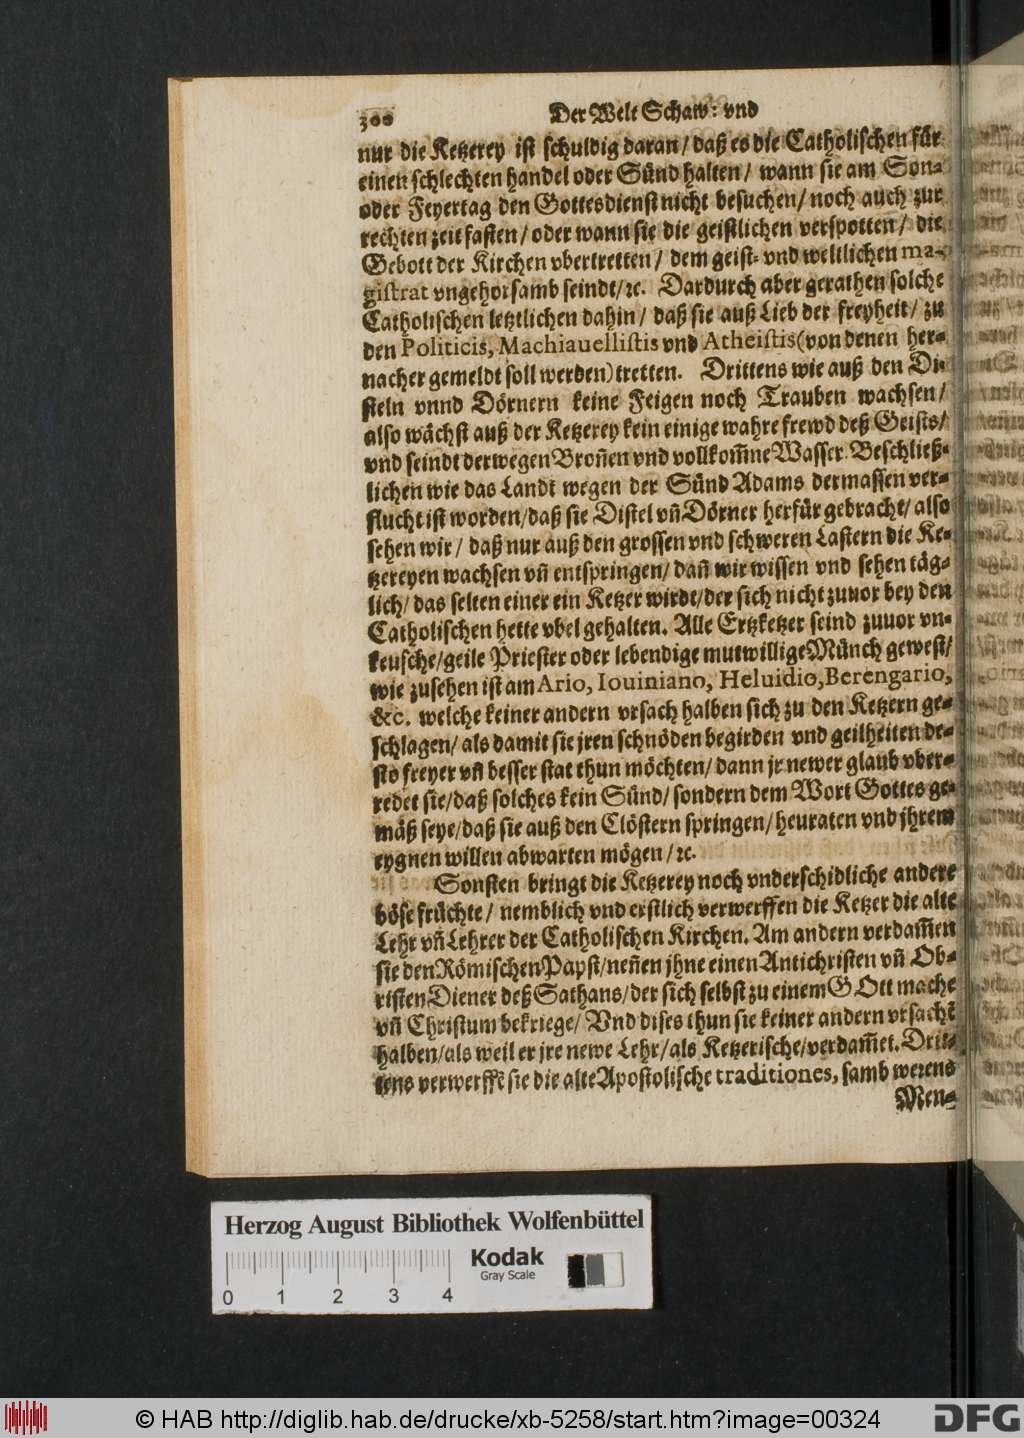 300 Der Welt Schaw: vnd
nur die Ketzerey ist schuldig daran / daß es die Catholischen für
einen schlechten handel oder Sünd halten / wann sie am Son-
oder Feyertag den Gottesdienst nicht besuchen / noch auch zur
rechten zeit fasten / oder wann sie die geistlichen verspotten / die
Gebott der Kirchen vbertretten / dem geist- vnd weltlichen ma-
gistrat vngehorsamb seindt / ꝛc. Dardurch aber gerathen solche
Catholischen letztlichen dahin / daß sie auß Lieb der freyheit / zu
den Politicis, Machiauellistis vnd Atheistis (von denen her-
nacher gemeldt soll werden) tretten. Drittens wie auß den Di-
steln vnnd Dörnern keine Feigen noch Trauben wachsen /
also wächst auß der Ketzerey kein einige wahre frewd deß Geists /
vnd seindt derwegen Broñen vnd vollkom̃ne Wasser. Beschließ-
lichen wie das Landt wegen der Sünd Adams dermassen ver-
flucht ist worden / daß sie Distel vñ Dörner herfür gebracht / also
sehen wir / daß nur auß den grossen vnd schweren Lastern die Ke-
tzereyen wachsen vñ entspringen / dañ wir wissen vnd sehen täg-
lich / das selten einer ein Ketzer wirdt / der sich nicht zuuor bey den
Catholischen hette vbel gehalten. Alle Ertzketzer seind zuuor vn-
keusche / geile Priester oder lebendige mutwillige Münch gewest /
wie zusehen ist am Ario, Iouiniano, Heluidio, Berengario,
&c. welche keiner andern vrsach halben sich zu den Ketzern ge-
schlagen / als damit sie jren schnöden begirden vnd geilheiten de-
sto freyer vñ besser stat thun möchten / dann jr newer glaub vber-
redet sie / daß solches kein Sünd / sondern dem Wort Gottes ge-
mäß seye / daß sie auß den Clöstern springen / heuraten vnd jhrem
eygnen willen abwarten mögen / ꝛc.
Sonsten bringt die Ketzerey noch vnderschidliche andere
böse früchte / nemblich vnd erstlich verwerffen die Ketzer die alte
Lehr vñ Lehrer der Catholischen Kirchen. Am andern verdam̃en
sie den Römischen Papst / neñen jhne einen Antichristen vñ Ob-
risten Diener deß Sathans / der sich selbst zu einem GOtt mache
vñ Christum bekriege / Vnd dises thun sie keiner andern vrsach
halben / als weil er jre newe Lehr / als Ketzerische / verdam̃et. Drit-
tens verwerffẽ sie die alte Apostolische traditiones, samb weren s
Men-
Herzog August Bibliothek Wolfenbüttel
Kodak
Gray Scale
0 1 2 3 4
© HAB http://diglib.hab.de/drucke/xb-5258/start.htm?image=00324
DFG